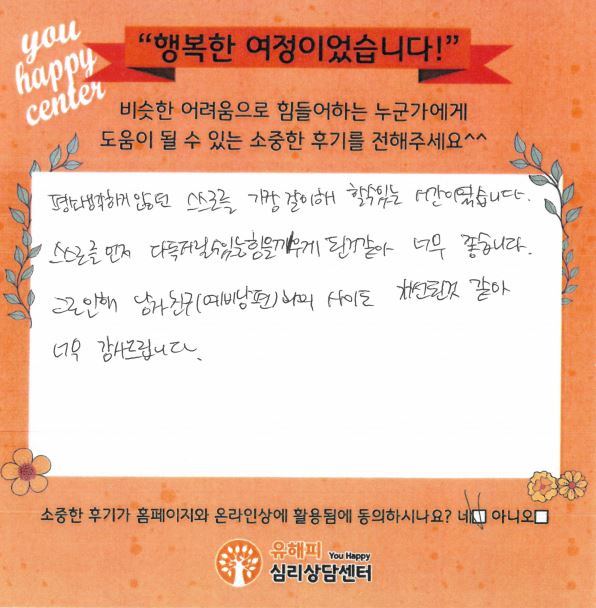 you
happy
center
“행복한 여정이었습니다!”
비슷한 어려움으로 힘들어하는 누군가에게
도움이 될 수 있는 소중한 후기를 전해주세요^^
평소생각하지 않았던 스스로를 가장 잘이해 할수있는 시간이였습니다.
스스로를 먼저 다독여질수있는힘을키우게 된거같아 너무 좋습니다.
그로인해 남자친구(예비남편)과의 사이도 개선된것 같아
너무 감사드립니다.
소중한 후기가 홈페이지와 온라인상에 활용됨에 동의하시나요? 네 아니오
유해피 You Happy
심리상담센터